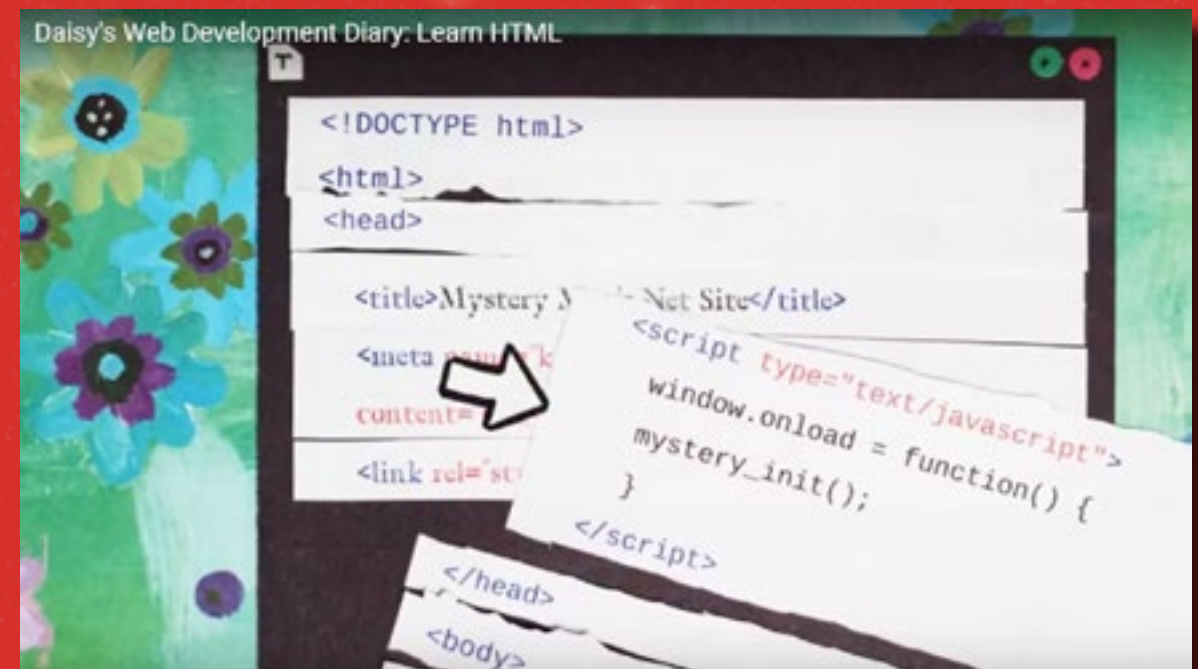 Daisy's Web Development Diary: Learn HTML
T
<!DOCTYPE html>
<html>
<head>
<title>Mystery Net Site</title>
<meta
content=
<link rel="
<script type="text/javascript">
window.onload = function() {
mystery_init();
}
</script>
</head>
<body>